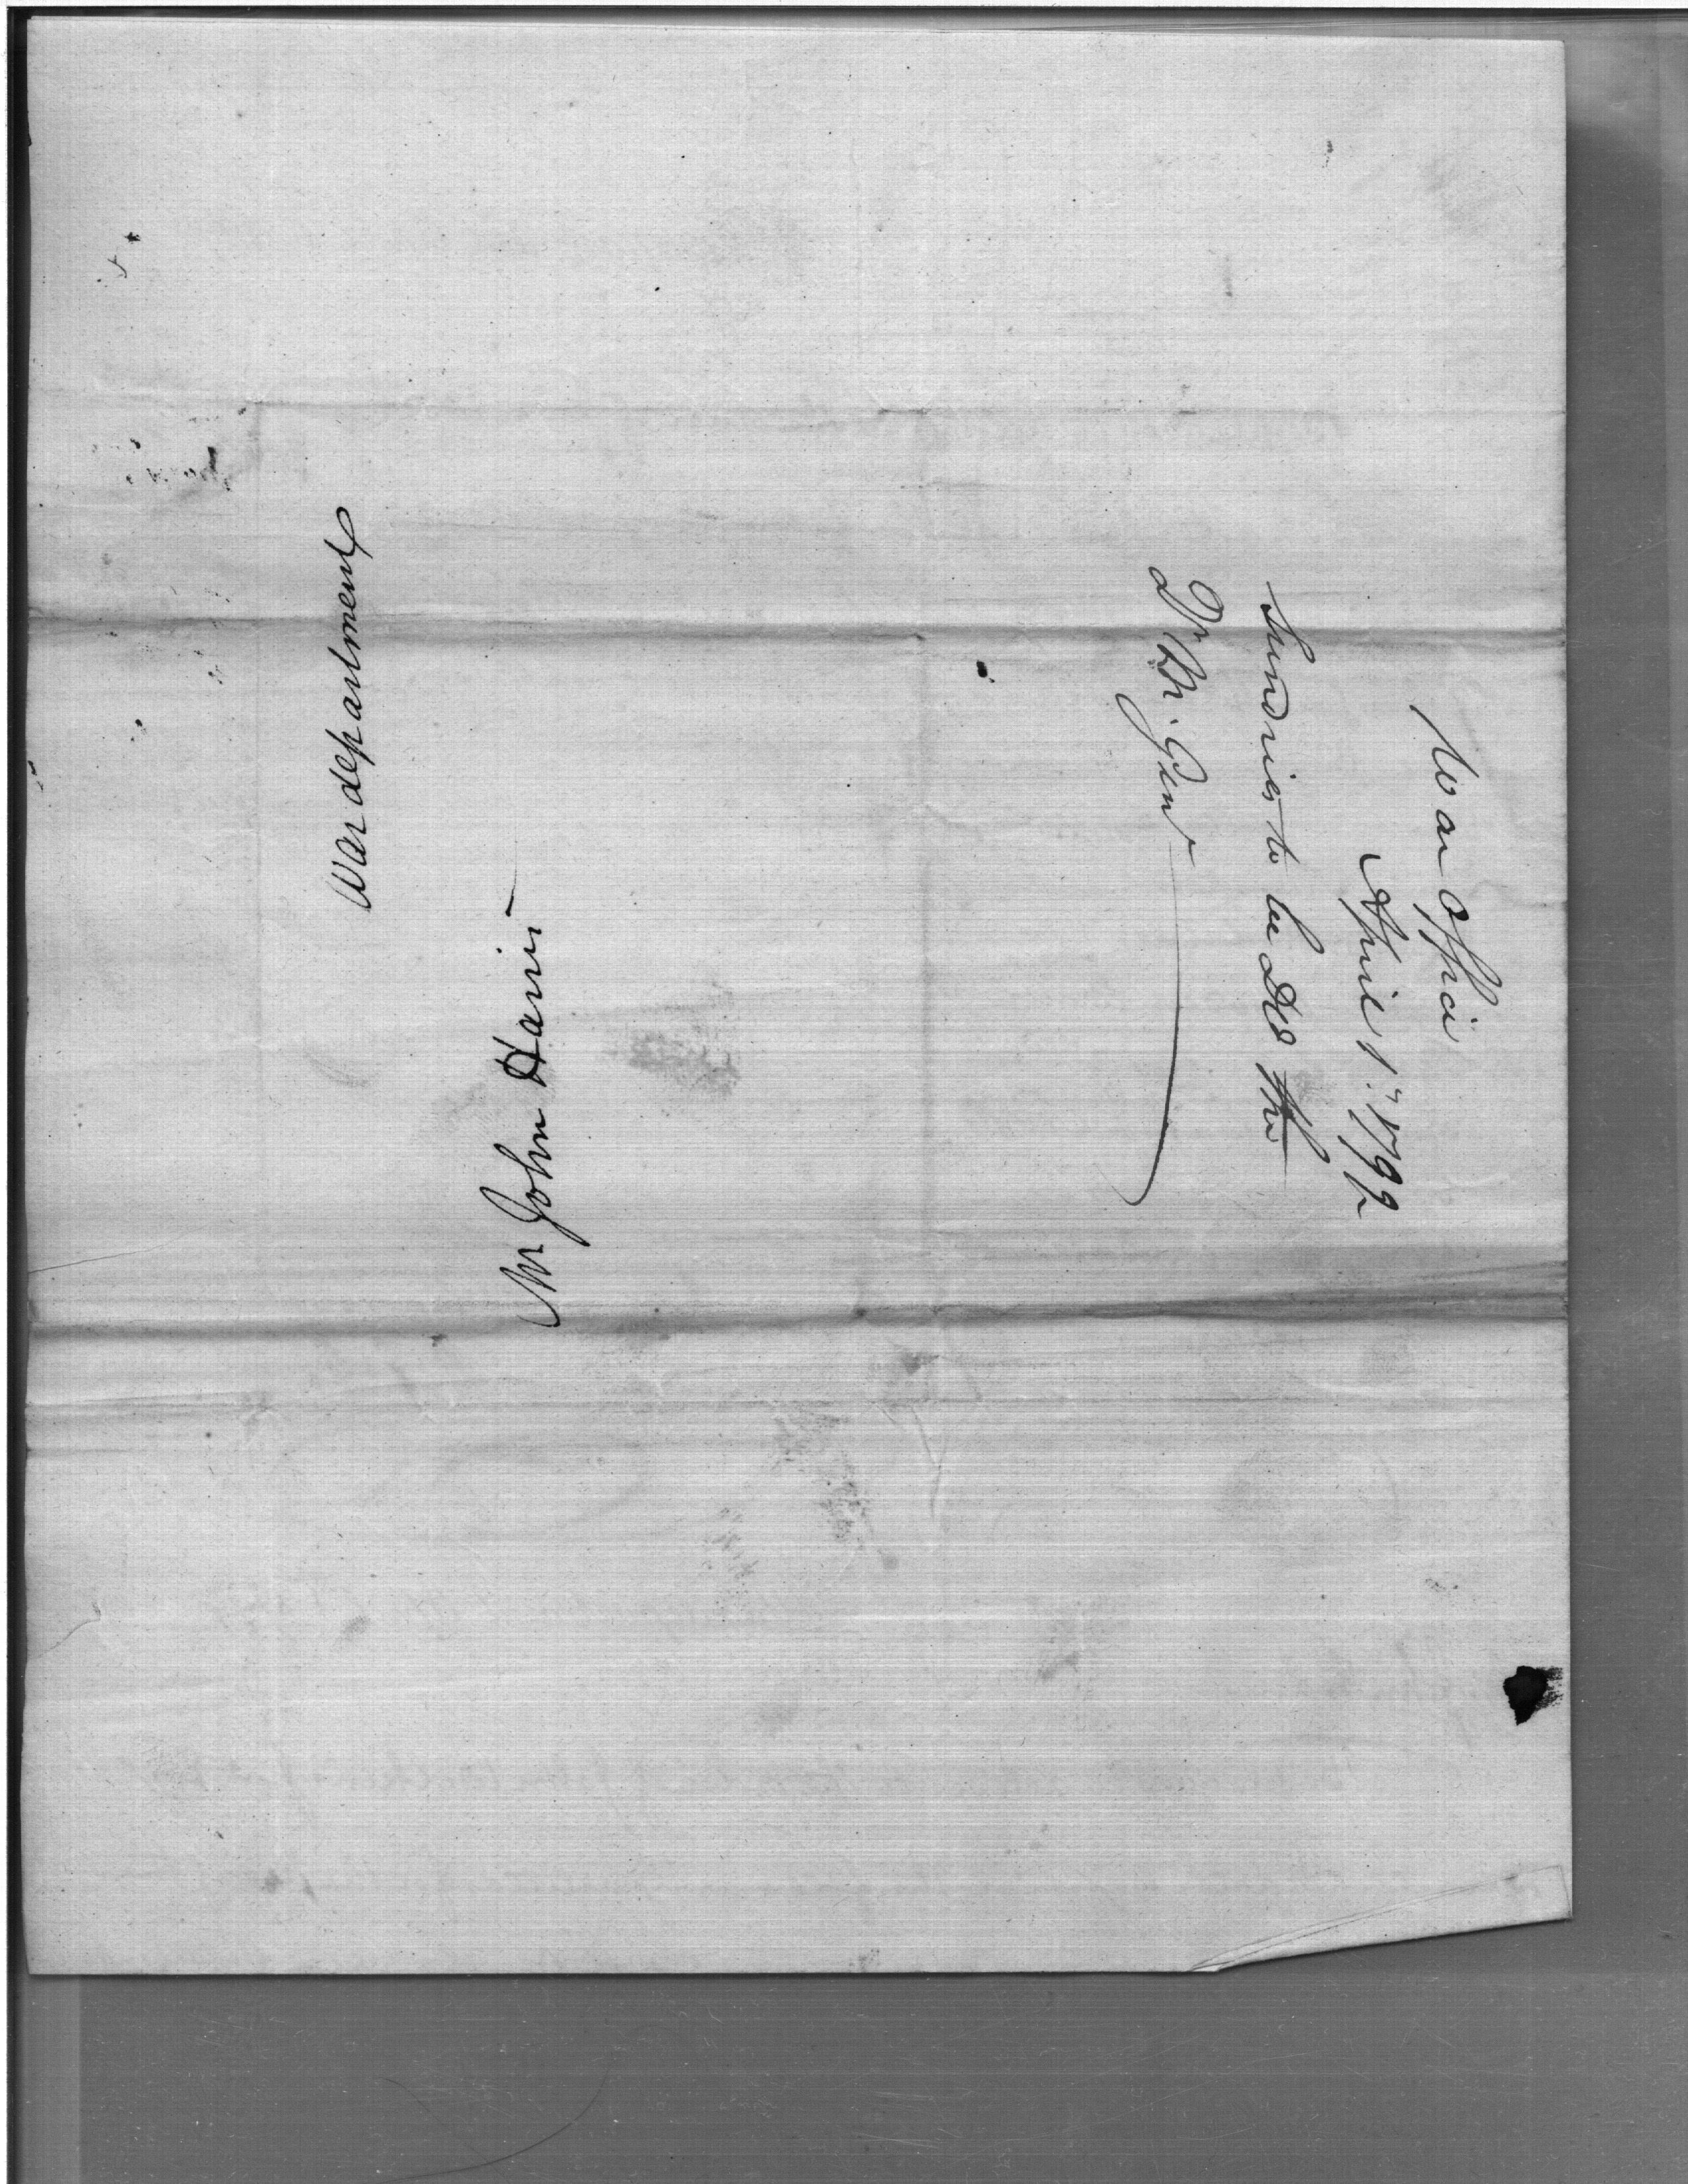 War department
Mr John Harris
War Office
April 1st 1792
Sundries to be Ded the
Dr Mr. Genl